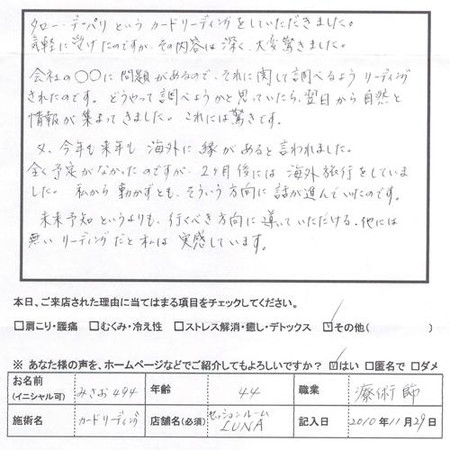 タロー・デ・パリというカードリーディングをしていただきました。
気軽に受けたのですが、その内容は深く、大変驚きました。
会社の〇〇に問題があるので、それに関して調べるようリーディング
されたのです。どうやって調べようかと思っていたら、翌日から自然と
情報が集まってきました。これには驚きです。
又、今年も来年も海外に縁があると言われました。
全く予定がなかったのですが、2ヶ月後には海外旅行をしていま
した。私から動かずとも、そういう方向に話が進んでいたのです。
未来予知というよりも、行くべき方向に導いていただける、他には
無いリーディングだと私は実感しています。
本日、ご来店された理由に当てはまる項目をチェックしてください。
□肩こり・腰痛 □むくみ・冷え性 □ストレス解消・癒し・デトックス ☑その他( )
※ あなた様の声を、ホームページなどでご紹介してもよろしいですか？ ☑はい □匿名で □ダメ
お名前 (イニシャル可) みさお494 年齢 44 職業 療術師
施術名 カードリーディング 店舗名(必須) セッションルーム LUNA 記入日 2010年11月29日